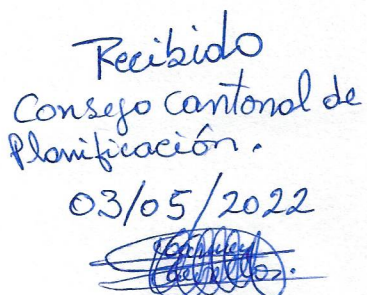 Recibido
Consejo Cantonal de
Planificación.
03/05/2022